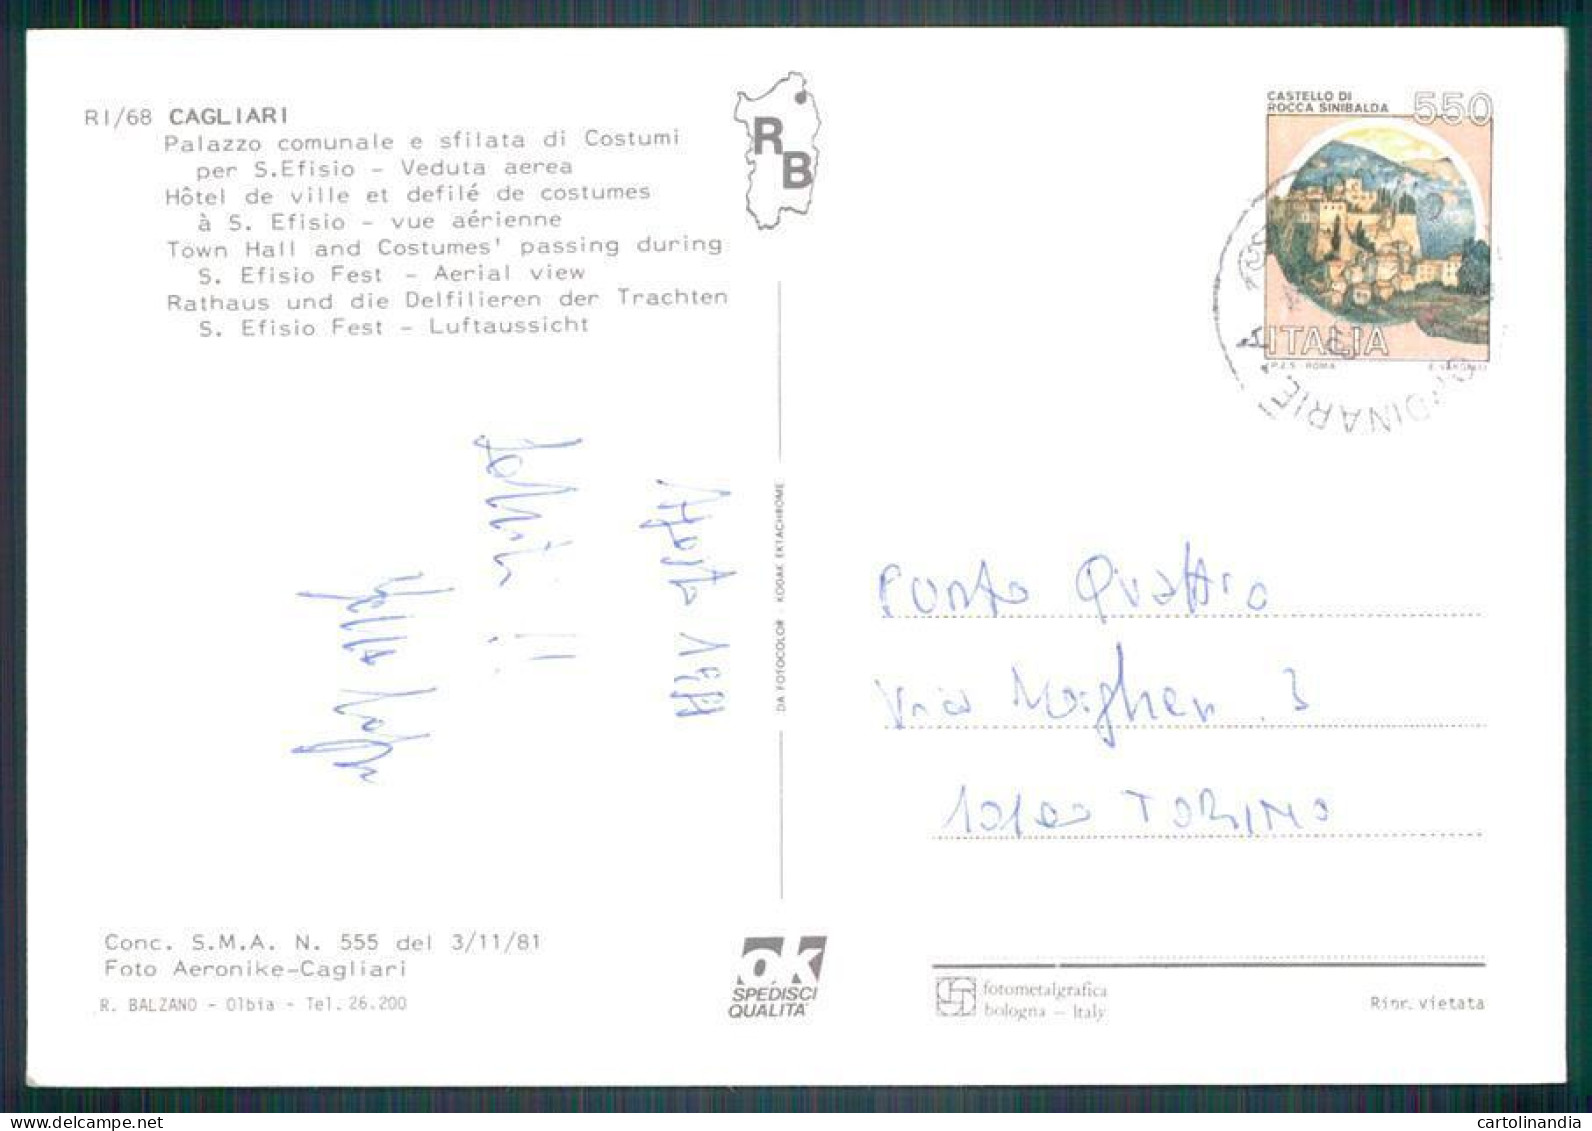 RI/68 CAGLIARI
Palazzo comunale e sfilata di Costumi
per S.Efisio - Veduta aerea
Hôtel de ville et defilé de costumes
à S. Efisio - vue aérienne
Town Hall and Costumes' passing during
S. Efisio Fest - Aerial view
Rathaus und die Delfilieren der Trachten
S. Efisio Fest - Luftaussicht
R
B
CASTELLO DI
ROCCA SINIBALDA
550
ITALIA
I.P.Z.S - ROMA
ORDINARIE
Agosto
!!
DA FOTOCOLOR - KODAK EKTACHROME
Punto Quattro
Via 3
TORINO
Conc. S.M.A. N. 555 del 3/11/81
Foto Aeronike-Cagliari
R. BALZANO - Olbia - Tel. 26.200
OK
SPEDISCI
QUALITA'
fotometalgrafica
bologna - Italy
Ripr. vietata
cartolinandia